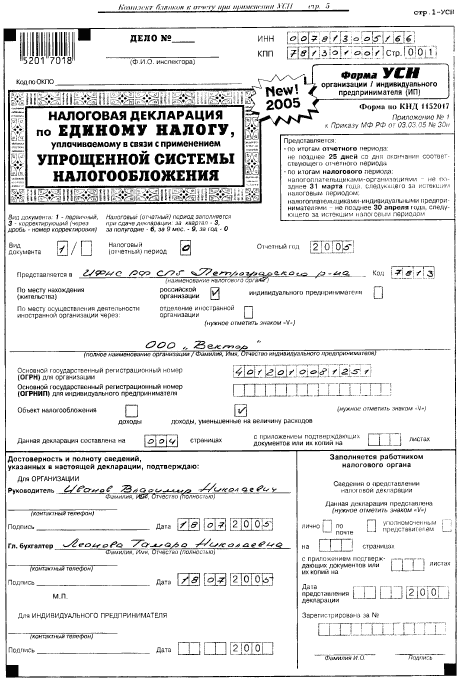 Комплект бланков к отчету при применении УСН стр. 5
стр.1-УСН
ДЕЛО №
(Ф.И.О. инспектора)
ИНН 007813005166
КПП 781301001 Стр. 001
5201 7018
Код по ОКПО
New! 2005
Форма УСН
организации / индивидуального
предпринимателя (ИП)
Форма по КНД 1152017
Приложение № 1
к Приказу МФ РФ от 03.03.05 № 30н
НАЛОГОВАЯ ДЕКЛАРАЦИЯ
по ЕДИНОМУ НАЛОГУ,
уплачиваемому в связи с применением
УПРОЩЕННОЙ СИСТЕМЫ
НАЛОГООБЛОЖЕНИЯ
Представляется:
- по итогам отчетного периода:
не позднее 25 дней со дня окончания соответ-
ствующего отчетного периода
- по итогам налогового периода:
налогоплательщиками-организациями – не по-
зднее 31 марта года, следующего за истекшим
налоговым периодом;
налогоплательщиками-индивидуальными пред-
принимателями – не позднее 30 апреля года, следу-
ющего за истекшим налоговым периодом
Вид документа: 1 - первичный,
3 - корректирующий (через
дробь - номер корректировки)
Налоговый (отчетный) период заполняется
при сдаче декларации: за квартал - 3,
за полугодие - 6, за 9 мес. - 9, за год - 0
Вид документа 1 /
Налоговый (отчетный) период 0
Отчетный год 2005
Представляется в ИФНС РФ СПб "Петроградского р-на Код 7813
(наименование налогового органа)
По месту нахождения (жительства)
российской организации V
индивидуального предпринимателя
По месту осуществления деятельности иностранной организации через:
отделение иностранной организации
(нужное отметить знаком «V»)
ООО "Вектор"
(полное наименование организации / Фамилия, Имя, Отчество индивидуального предпринимателя)
Основной государственный регистрационный номер
(ОГРН) для организации 4012010081251
Основной государственный регистрационный номер
(ОГРНИП) для индивидуального предпринимателя
Объект налогообложения V (нужное отметить знаком «V»)
доходы доходы, уменьшенные на величину расходов
Данная декларация составлена на 004 страницах
с приложением подтверждающих документов или их копий на листах
Достоверность и полноту сведений,
указанных в настоящей декларации, подтверждаю:
Для ОРГАНИЗАЦИИ
Руководитель Иванов Владимир Николаевич
Фамилия, Имя, Отчество (полностью)
(контактный телефон)
Подпись Дата 18 07 2005
Гл. бухгалтер Леонова Тамара Николаевна
Фамилия, Имя, Отчество (полностью)
(контактный телефон)
Подпись Дата 18 07 2005
М.П.
Для ИНДИВИДУАЛЬНОГО ПРЕДПРИНИМАТЕЛЯ
(контактный телефон)
Подпись Дата 200
Заполняется работником
налогового органа
Сведения о представлении
налоговой декларации
Данная декларация представлена
(нужное отметить знаком «V»)
лично по почте уполномоченным представителем
на страницах
с приложением подтверж-
дающих документов или
их копий на листах
Дата представления декларации 200
Зарегистрирована за №
Фамилия И.О. Подпись